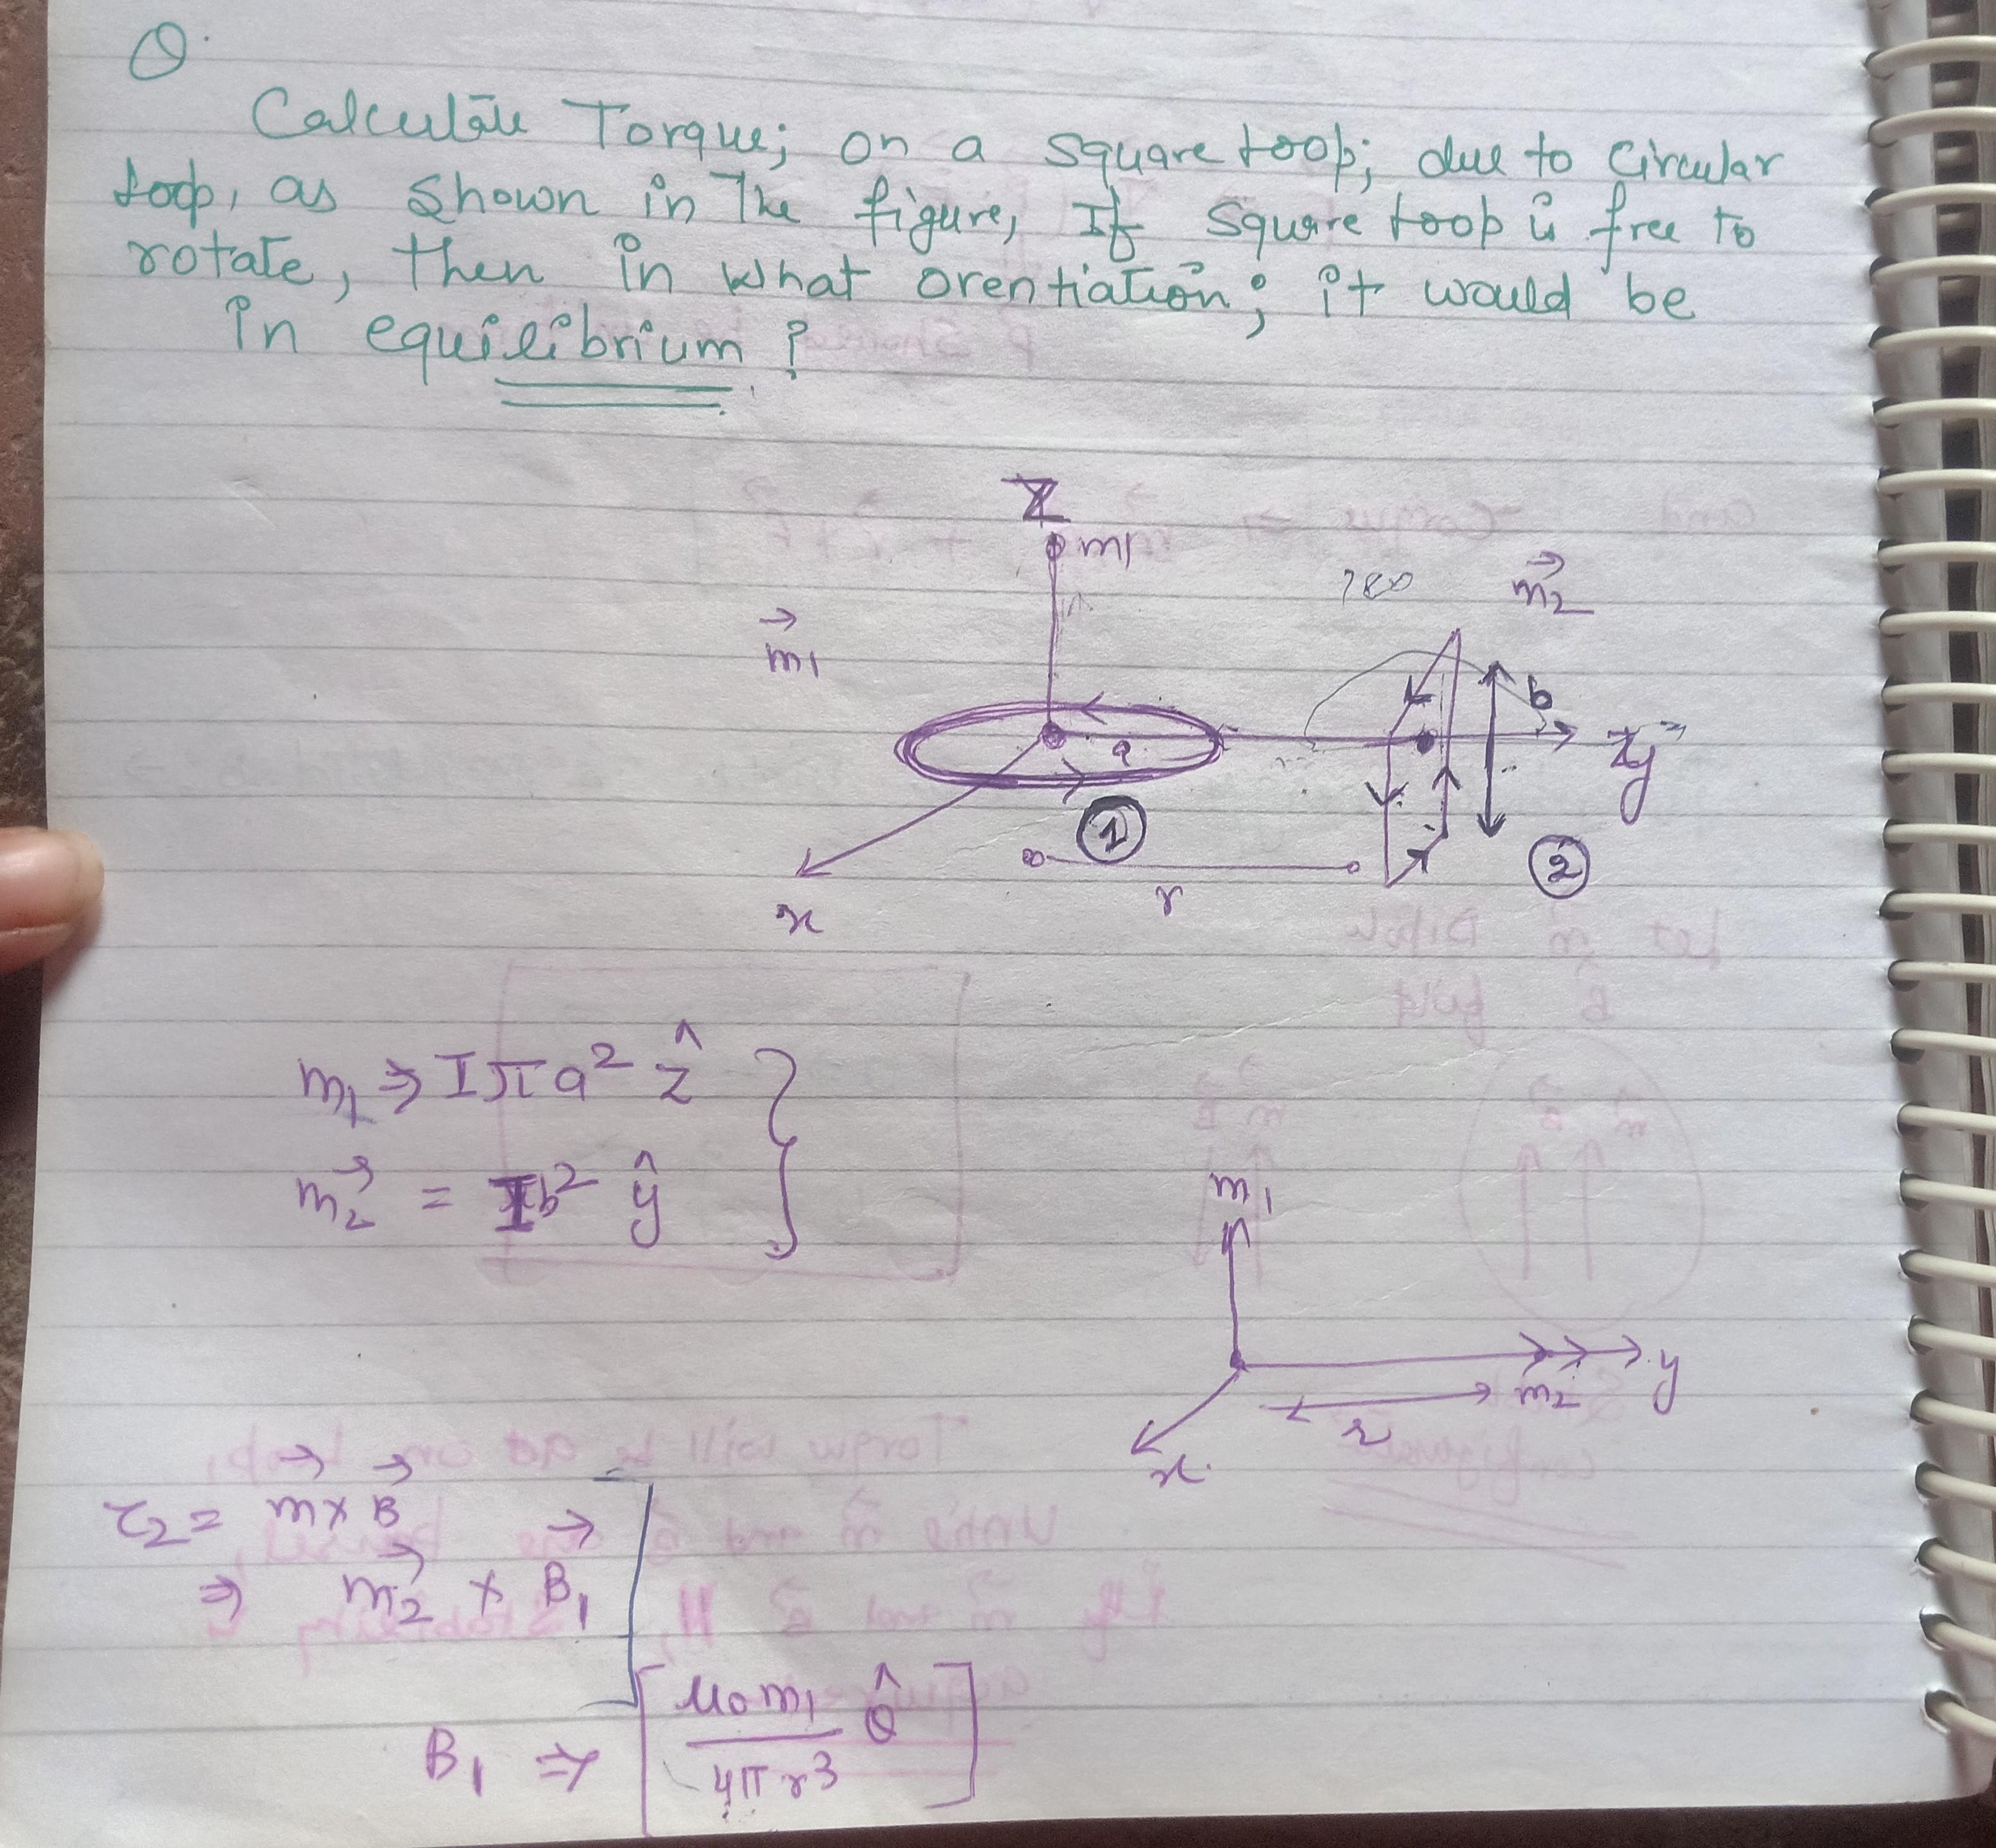 Q.
Calculate Torque; on a square loop; due to Circular
loop, as shown in The figure, If square loop is free to
rotate, then in what orentiation; it would be
in equilibrium ?
Z
m1
m1
m2
b
a
y
1
2
r
x
m1 ⇒ Iπa² ẑ
m2 = Ib² ŷ
m1
y
m2
r
x
τ2 = m × B
⇒ m2 × B1
B1 ⇒ [μ0 m1 / 4π r³ θ̂]